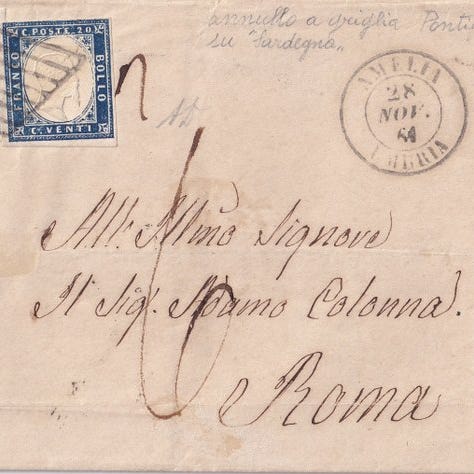 annullo a griglia Ponti
su "Sardegna"
C. POSTE. 20
FRANCO
BOLLO
C. VENTI
AMELIA
28
NOV.
61
UMBRIA
AD
6
All' Illmo Signore
Il Sig. Adamo Colonna.
Roma